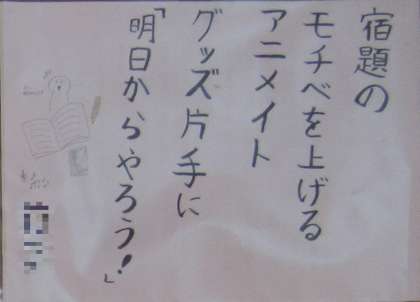 宿題の
モチベを上げる
アニメイト
グッズ片手に
「明日からやろう！」